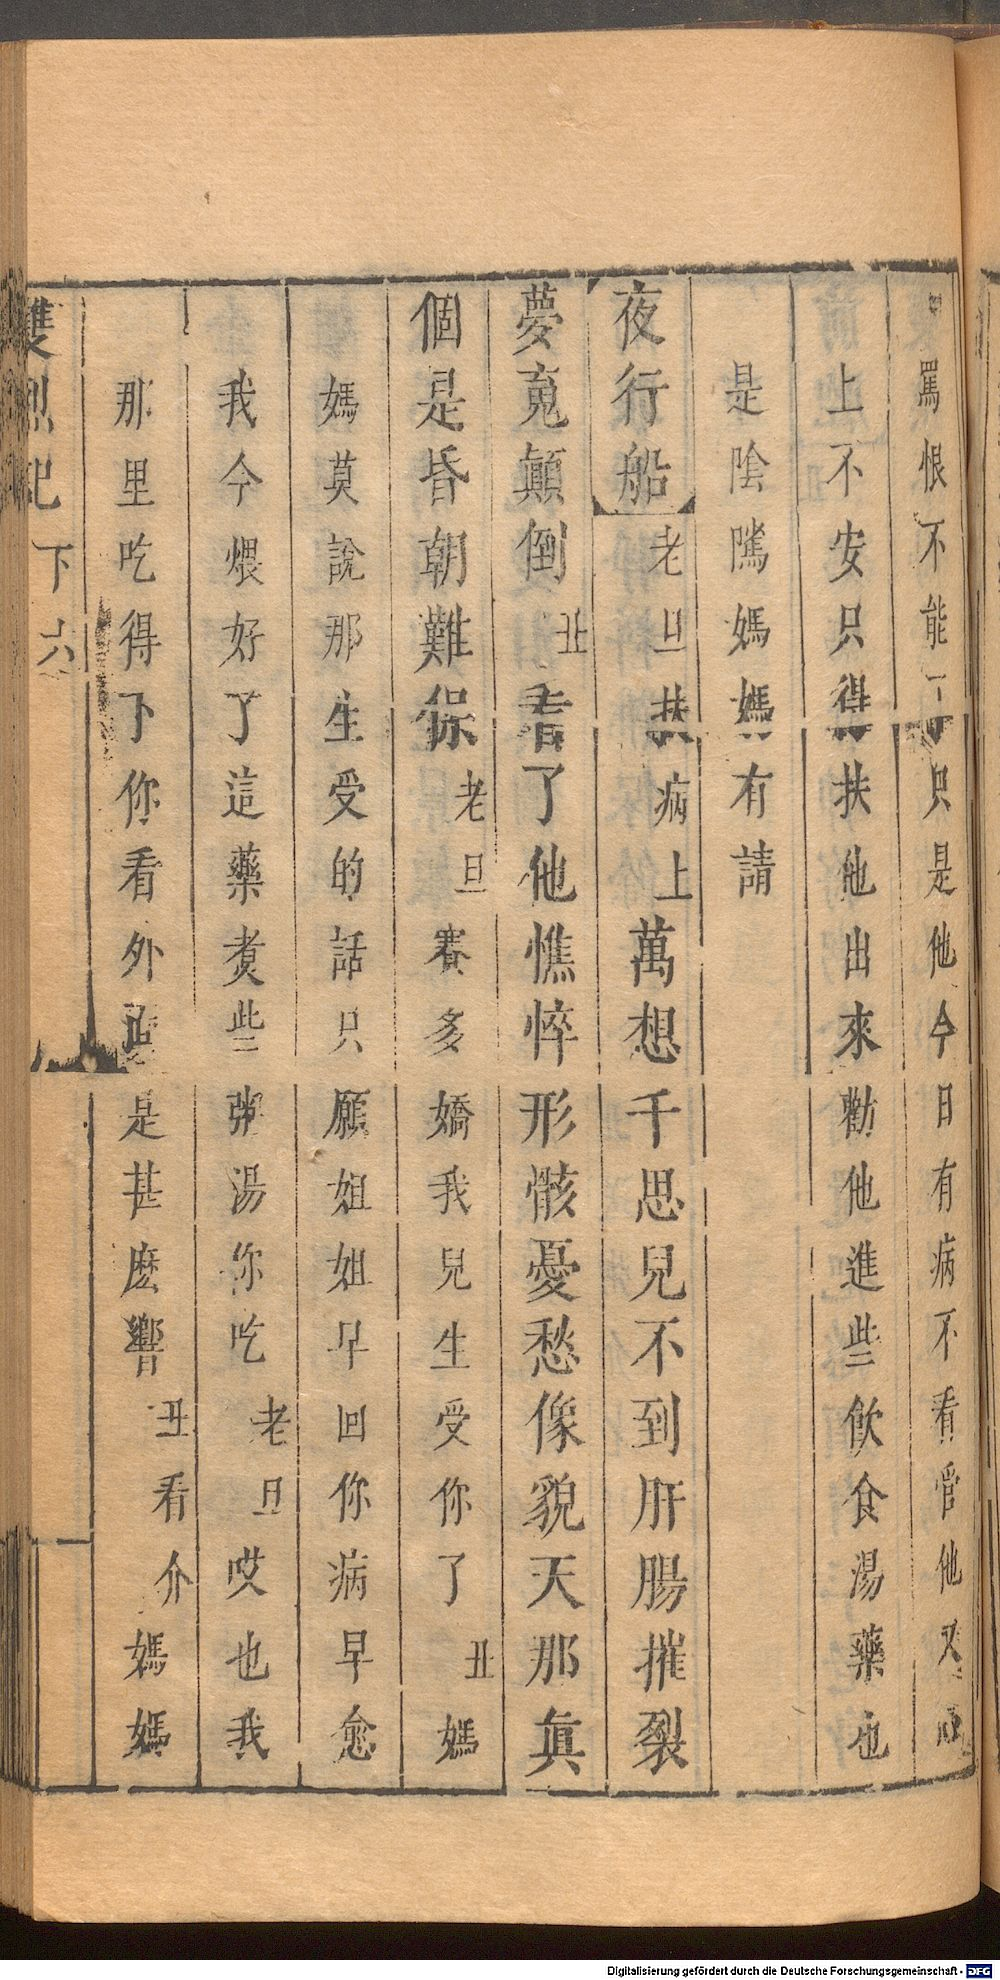 罵恨不能丁只是他今日有病不看管他又
上不安只得扶他出來勸他進些飲食湯藥也
是陰隲媽媽有請
夜行船 老旦扶病上 萬想千思兒不到肝腸摧裂
夢䰟顛倒 丑 看了他憔悴形骸憂愁像貌天那眞
個是昏朝難保 老旦 賽多嬌我兒生受你了 丑 媽
媽莫說那生受的話只願姐姐早回你病早愈
我今煨好了這藥煑些粥湯你吃 老旦 哎也我
那里吃得下你看外面是甚麽響 丑看介 媽媽
雙烈記 下 六
Digitalisierung gefördert durch die Deutsche Forschungsgemeinschaft - DFG